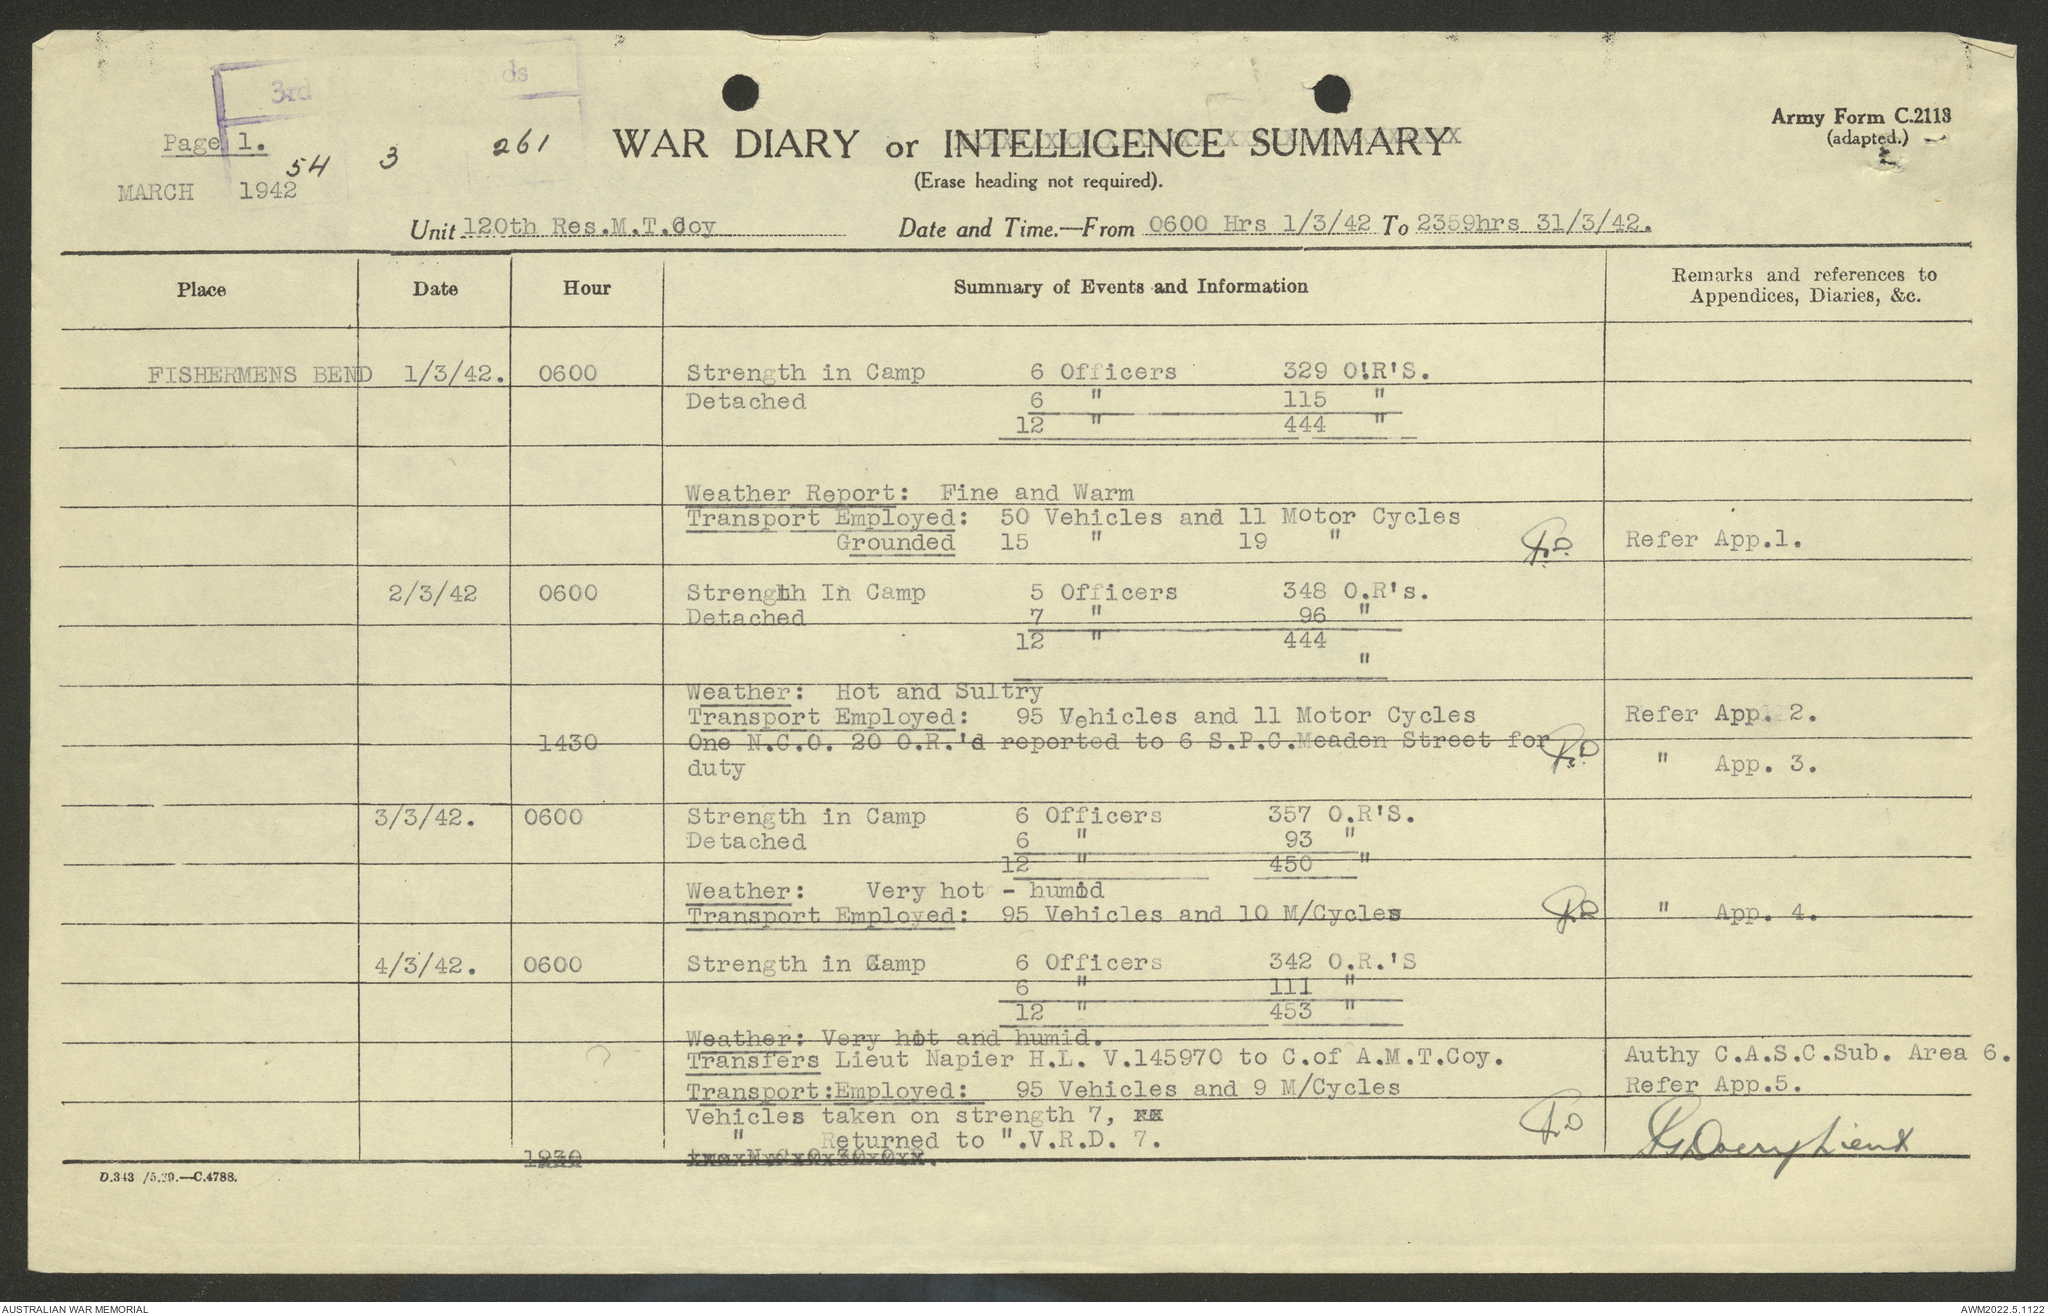 3rd ds
Page 1.
54 3 261
WAR DIARY or INTELLIGENCE SUMMARY
(Erase heading not required).
Army Form C.2118
(adapted.)
MARCH 1942
Unit 120th Res.M.T.Coy Date and Time.—From 0600 Hrs 1/3/42 To 2359hrs 31/3/42.
Place Date Hour Summary of Events and Information Remarks and references to Appendices, Diaries, &c.
FISHERMENS BEND 1/3/42. 0600 Strength in Camp 6 Officers 329 O!R'S.
Detached 6 " 115 "
12 " 444 "
Weather Report: Fine and Warm
Transport Employed: 50 Vehicles and 11 Motor Cycles
Grounded 15 " 19 " Refer App.1.
2/3/42 0600 Strength In Camp 5 Officers 348 O.R's.
Detached 7 " 96 "
12 " 444
"
Weather: Hot and Sultry
Transport Employed: 95 Vehicles and 11 Motor Cycles Refer App. 2.
1430 One N.C.O. 20 O.R.'d reported to 6 S.P.C.Meaden Street for
duty " App. 3.
3/3/42. 0600 Strength in Camp 6 Officers 357 O.R'S.
Detached 6 " 93 "
12 " 450 "
Weather: Very hot - humid
Transport Employed: 95 Vehicles and 10 M/Cycles " App. 4.
4/3/42. 0600 Strength in Camp 6 Officers 342 O.R.'S
6 " 111 "
12 " 453 "
Weather: Very hot and humid.
Transfers Lieut Napier H.L. V.145970 to C.of A.M.T.Coy. Authy C.A.S.C.Sub. Area 6.
Transport:Employed: 95 Vehicles and 9 M/Cycles Refer App.5.
Vehicles taken on strength 7,
" Returned to ".V.R.D. 7.
1930
Lieut
D.343 /5.39.—C.4788.
AUSTRALIAN WAR MEMORIAL AWM2022.5.1122